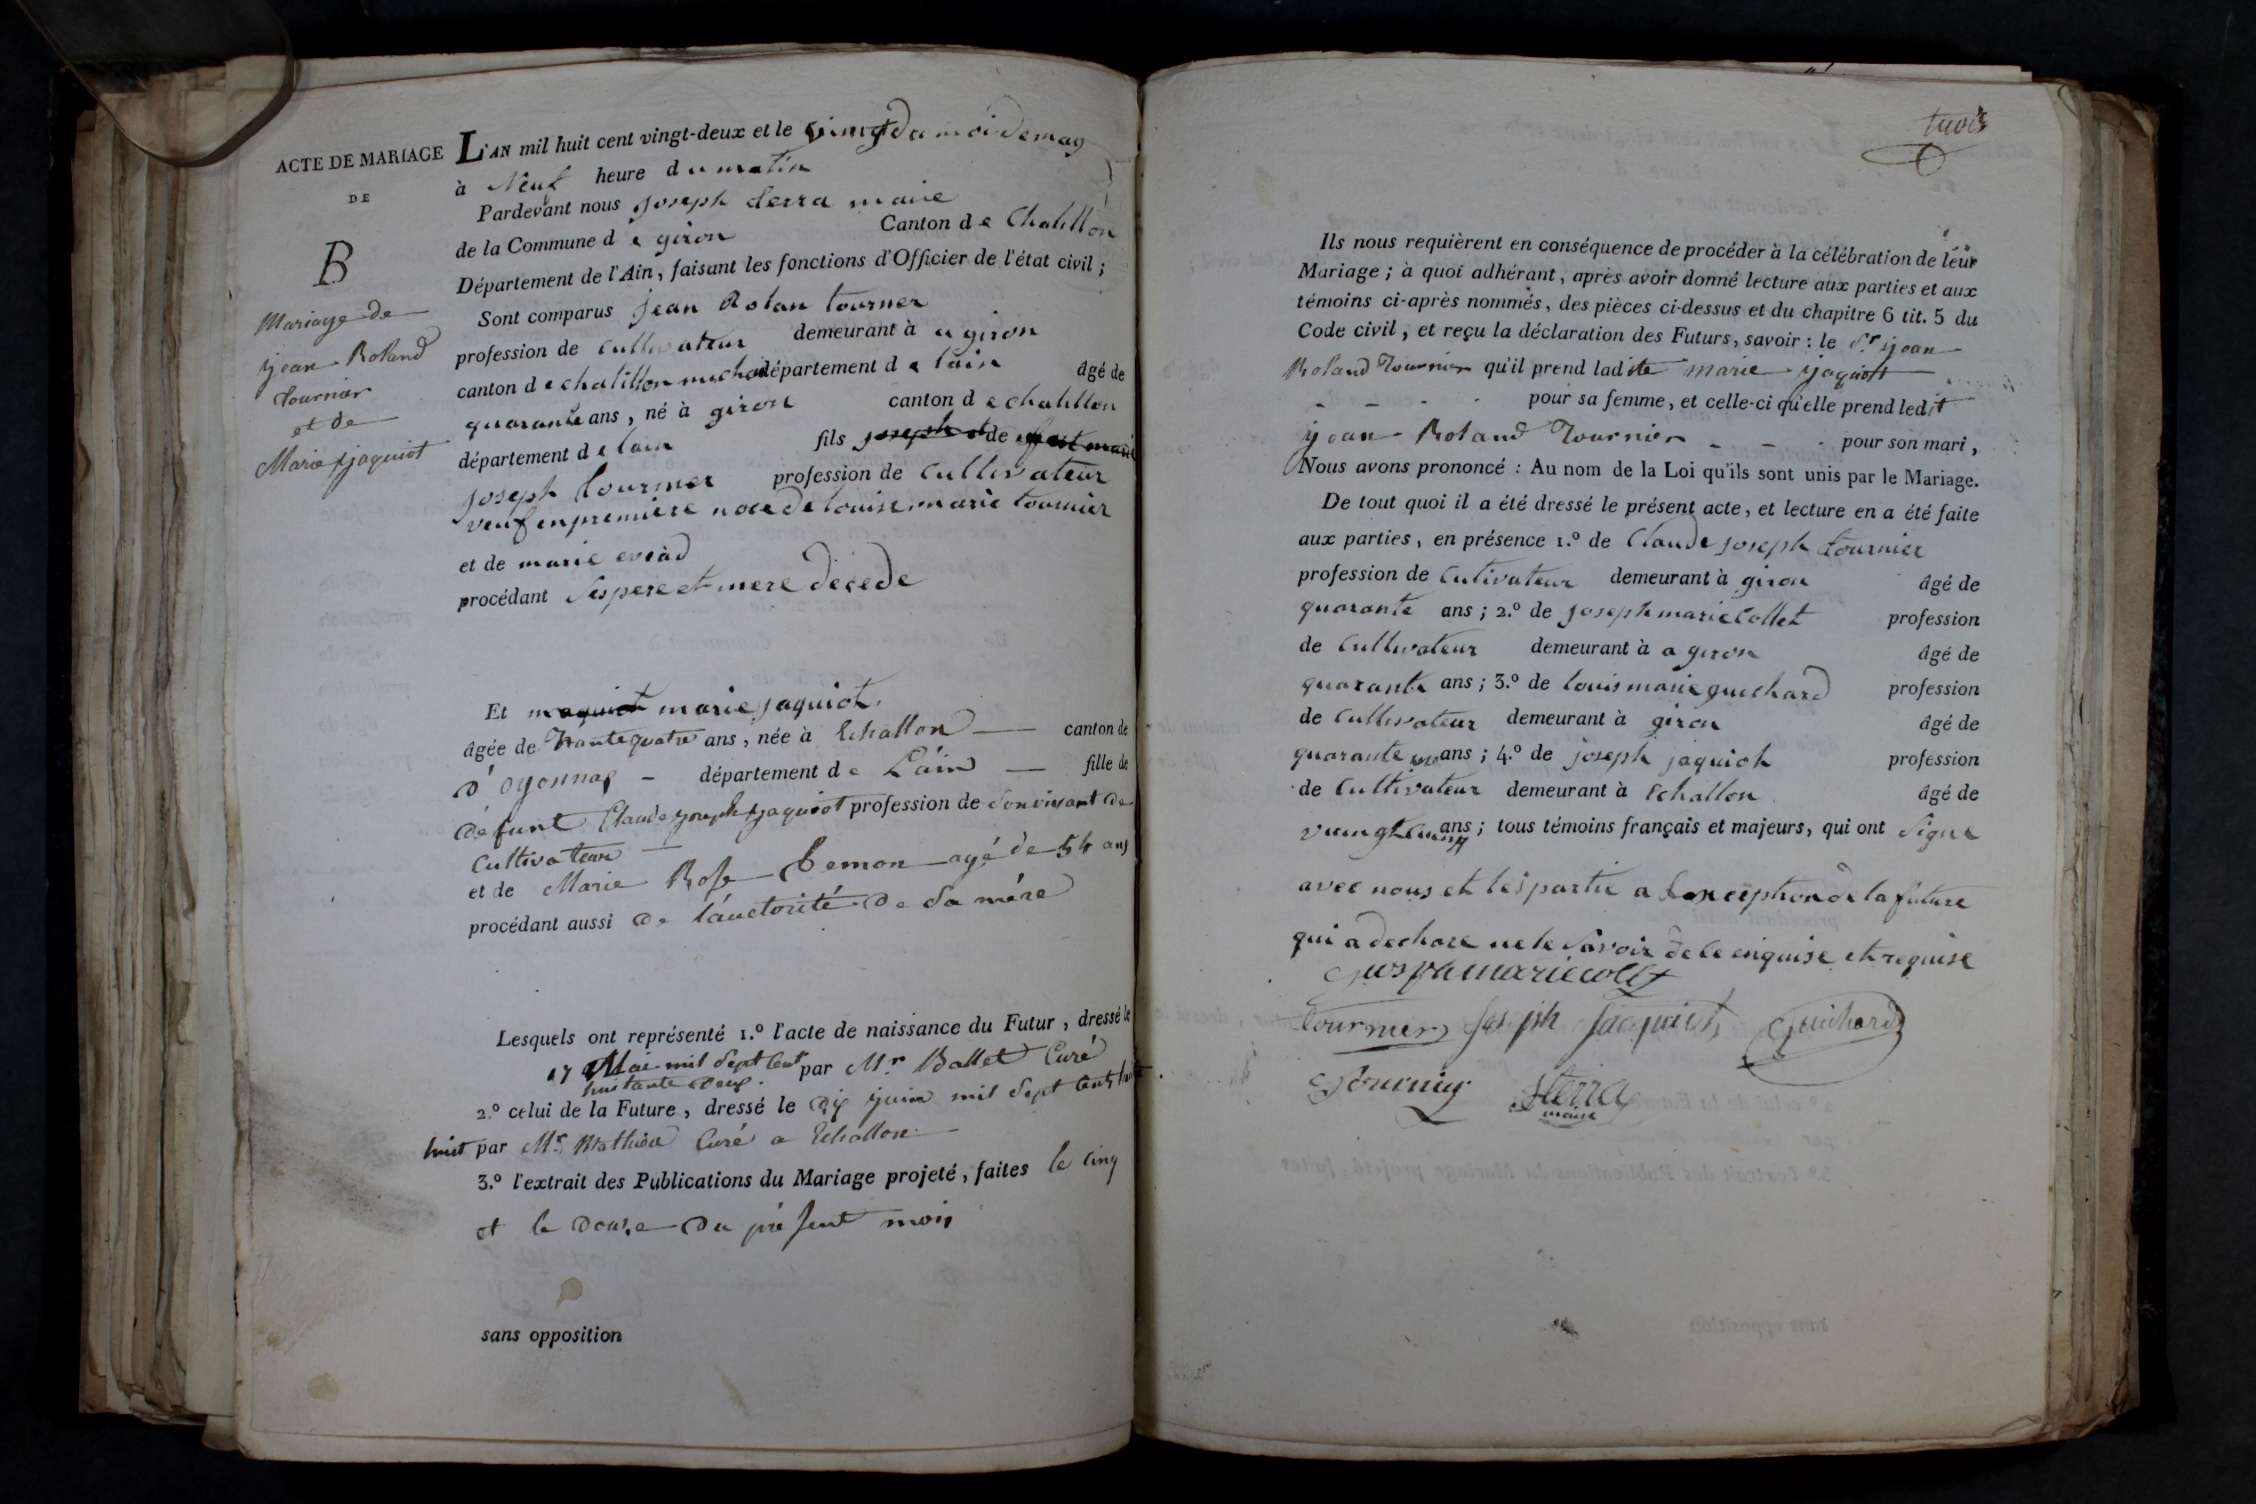 ACTE DE MARIAGE
DE
B
Mariage de
jean Roland
Tournier
et de
Marie jaquiot
L'AN mil huit cent vingt-deux et le vingt du moi de may
à Neuf heure du matin
Pardevant nous joseph terra maire
de la Commune de giron Canton de Chatillon
Département de l'Ain, faisant les fonctions d'Officier de l'état civil;
Sont comparus jean Rolan tournier
profession de cultivateur demeurant à a giron
canton de chatillon michail département de lain âgé de
quarante ans, né à giron canton de chatillon
département de lain fils joseph et de
joseph tournier profession de cultivateur
veuf en premiere noce de louise marie tournier
et de marie evrad
procédant ses pere et mere decede
Et marie jaquiot
âgée de trante quatre ans, née à Echallon canton de
d'oyonnax département de L'ain fille de
défunt Claude joseph jaquiot profession de Son vivant de
Cultivateur
et de Marie Rose temon agé de 54 ans
procédant aussi de l'auctorité de Sa mére
Lesquels ont représenté 1.º l'acte de naissance du Futur, dressé le
17 Mai mil Sept Cent par M.r Ballet Curé
huitante deux
2.º celui de la Future, dressé le dix juin mil Sept Cent huitante
huit par M.r Mathieu Curé a Echallon
3.º l'extrait des Publications du Mariage projeté, faites le Cinq
et le douze du présent mois
sans opposition
trois
Ils nous requièrent en conséquence de procéder à la célébration de leur
Mariage; à quoi adhérant, après avoir donné lecture aux parties et aux
témoins ci-après nommés, des pièces ci-dessus et du chapitre 6 tit. 5 du
Code civil, et reçu la déclaration des Futurs, savoir: le S.r jean
Roland Tournier qu'il prend ladite marie jaquiot
pour sa femme, et celle-ci qu'elle prend ledit
jean Roland Tournier pour son mari,
Nous avons prononcé: Au nom de la Loi qu'ils sont unis par le Mariage.
De tout quoi il a été dressé le présent acte, et lecture en a été faite
aux parties, en présence 1.º de Claude joseph tournier
profession de Cutivateur demeurant à giron âgé de
quarante ans; 2.º de joseph marie Collet profession
de Cultivateur demeurant à a giron âgé de
quarante ans; 3.º de louis marie guichard profession
de Cultivateur demeurant à giron âgé de
quarante un ans; 4.º de joseph jaquiot profession
de Cultivateur demeurant à Echallon âgé de
vuingt cinq ans; tous témoins français et majeurs, qui ont Signe
avec nous et les partie a Lexception de la future
qui a declare ne le Savoir de ce enquise et requise
jusph marie colet
tournier joseph jacquiot Guichard
tournier jterra
maire